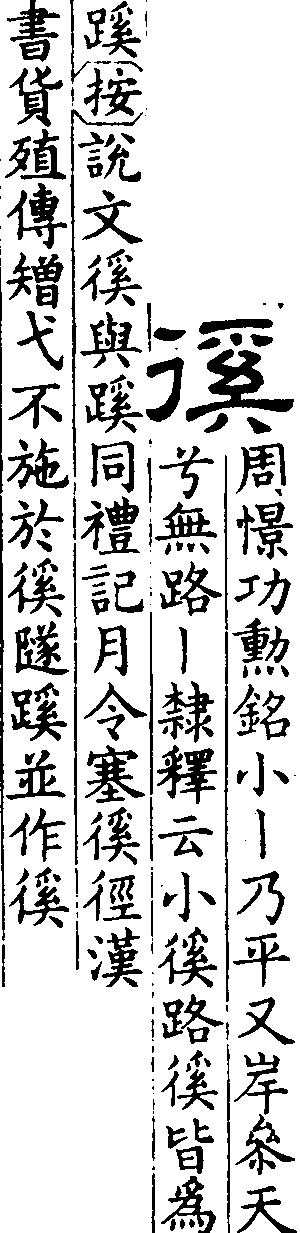 徯
周憬功勳銘小丨乃平又岸叅天
兮無路丨隸釋云小徯路徯皆爲
蹊按說文徯與蹊同禮記月令塞徯徑漢
書貨殖傳矰弋不施於徯隧蹊並作徯